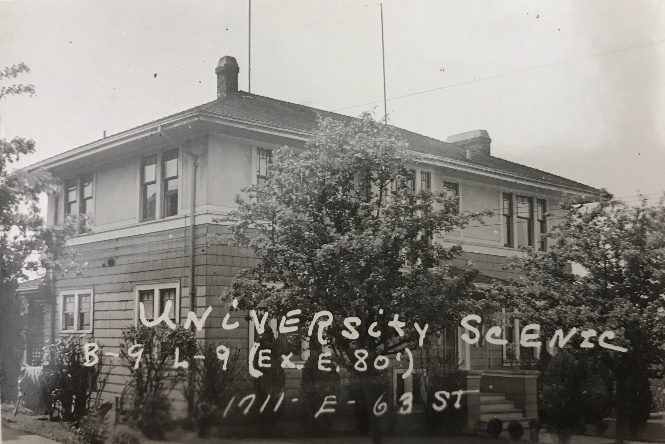 UNiVERSity SCENIC
B-9 L-9 (Ex. E. 80')
1711- E- 63 ST